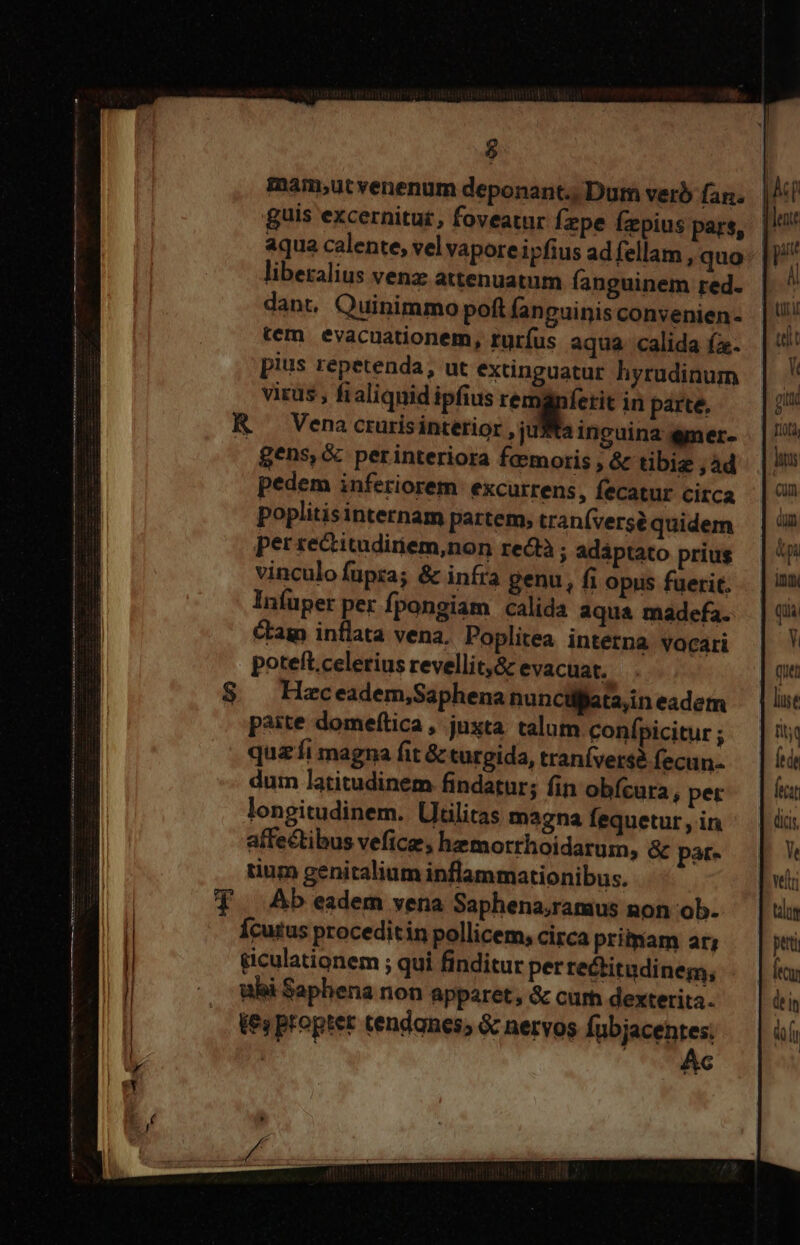 8
mam,ut venenum deponant. Dum verò ſan-
guis excernitur, foveatur ſæpe ſæpius pars,
aqua calente, vel vapore ipſius ad ſellam, quo
liberalius venæ attenuatum ſanguinem red-
dant. Quinimmo poſt ſanguinis convenien-
tem evacuationem, rurſus aqua calida ſæ-
pius repetenda, ut extinguatur hyrudinum
virus, ſi aliquid ipſius remanſerit in parte.
R Vena cruris interior, juxta inguina emer-
gens, & per interiora fœmoris, & tibiæ, ad
pedem inferiorem excurrens, ſecatur circa
poplitis internam partem, tranſversè quidem
per rectitudinem, non rectà; adaptato prius
vinculo ſupra; & infra genu, ſi opus fuerit.
Inſuper per ſpongiam calida aqua madefa-
ctam inflata vena. Poplitea interna vocari
poteſt. celerius revellit, & evacuat.
S Hæc eadem, Saphena nuncupata, in eadem
parte domeſtica, juxta talum conſpicitur;
quæ ſi magna fit & turgida, tranſversè ſecun-
dum latitudinem findatur; ſin obſcura, per
longitudinem. Utilitas magna ſequetur, in
affectibus veſicæ, hæmorrhoidarum, & par-
tium genitalium inflammationibus.
T Ab eadem vena Saphena, ramus non ob-
ſcurus procedit in pollicem, circa primam ar-
ticulationem; qui finditur per rectitudinem,
ubi Saphena non apparet, & cum dexterita-
te, propter tendones, & nervos ſubjacentes.
Ac